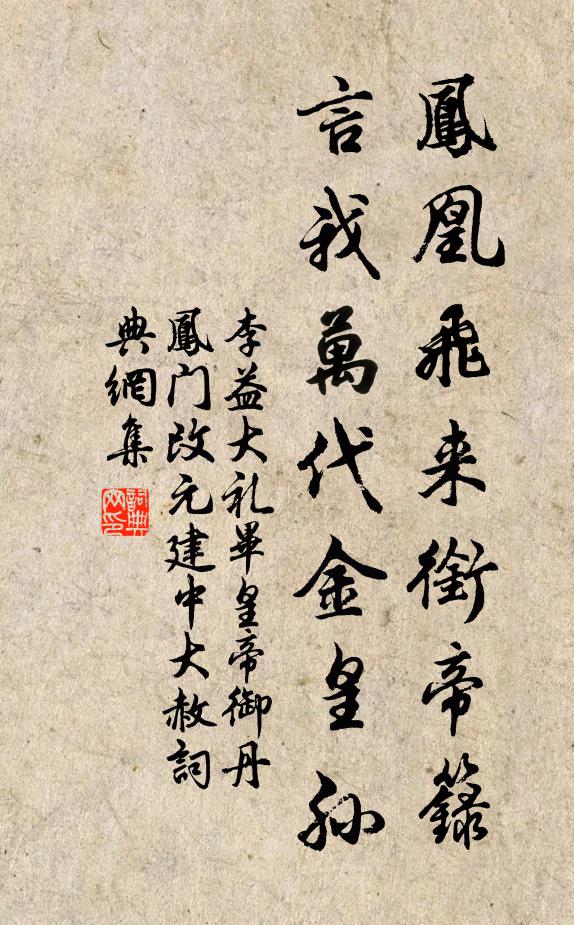 鳳凰飛来銜帝籙
言我萬代金皇孫
李益大礼畢皇帝御丹
鳳门改元建中大赦詞
典網集
詞典
网印